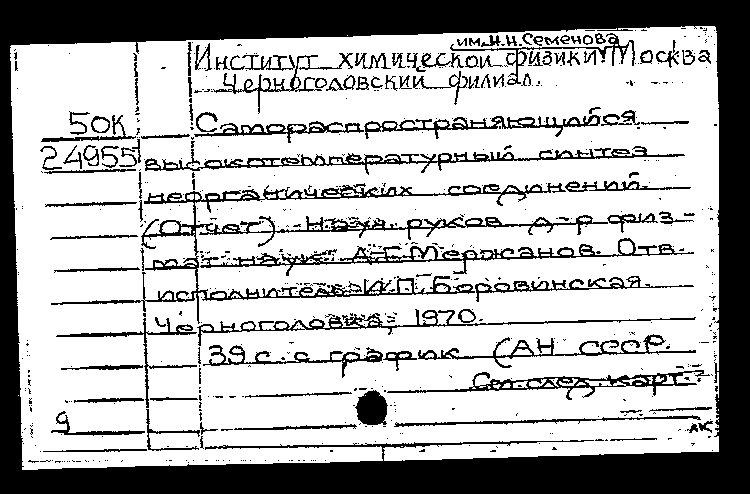 им. Н.Н. Семенова
Институт химической физики Москва
Черноголовский филиал.
50К
Самораспространяющийся
24955
высокотемпературный синтез
неорганических соединений.
(Отчет). Науч. руков. д-р физ-
мат. наук А.Г. Мержанов. Отв.
исполнитель И.П. Боровинская.
Черноголовка, 1970.
39 с. с график (АН СССР.
См. след. карт.
9
АК